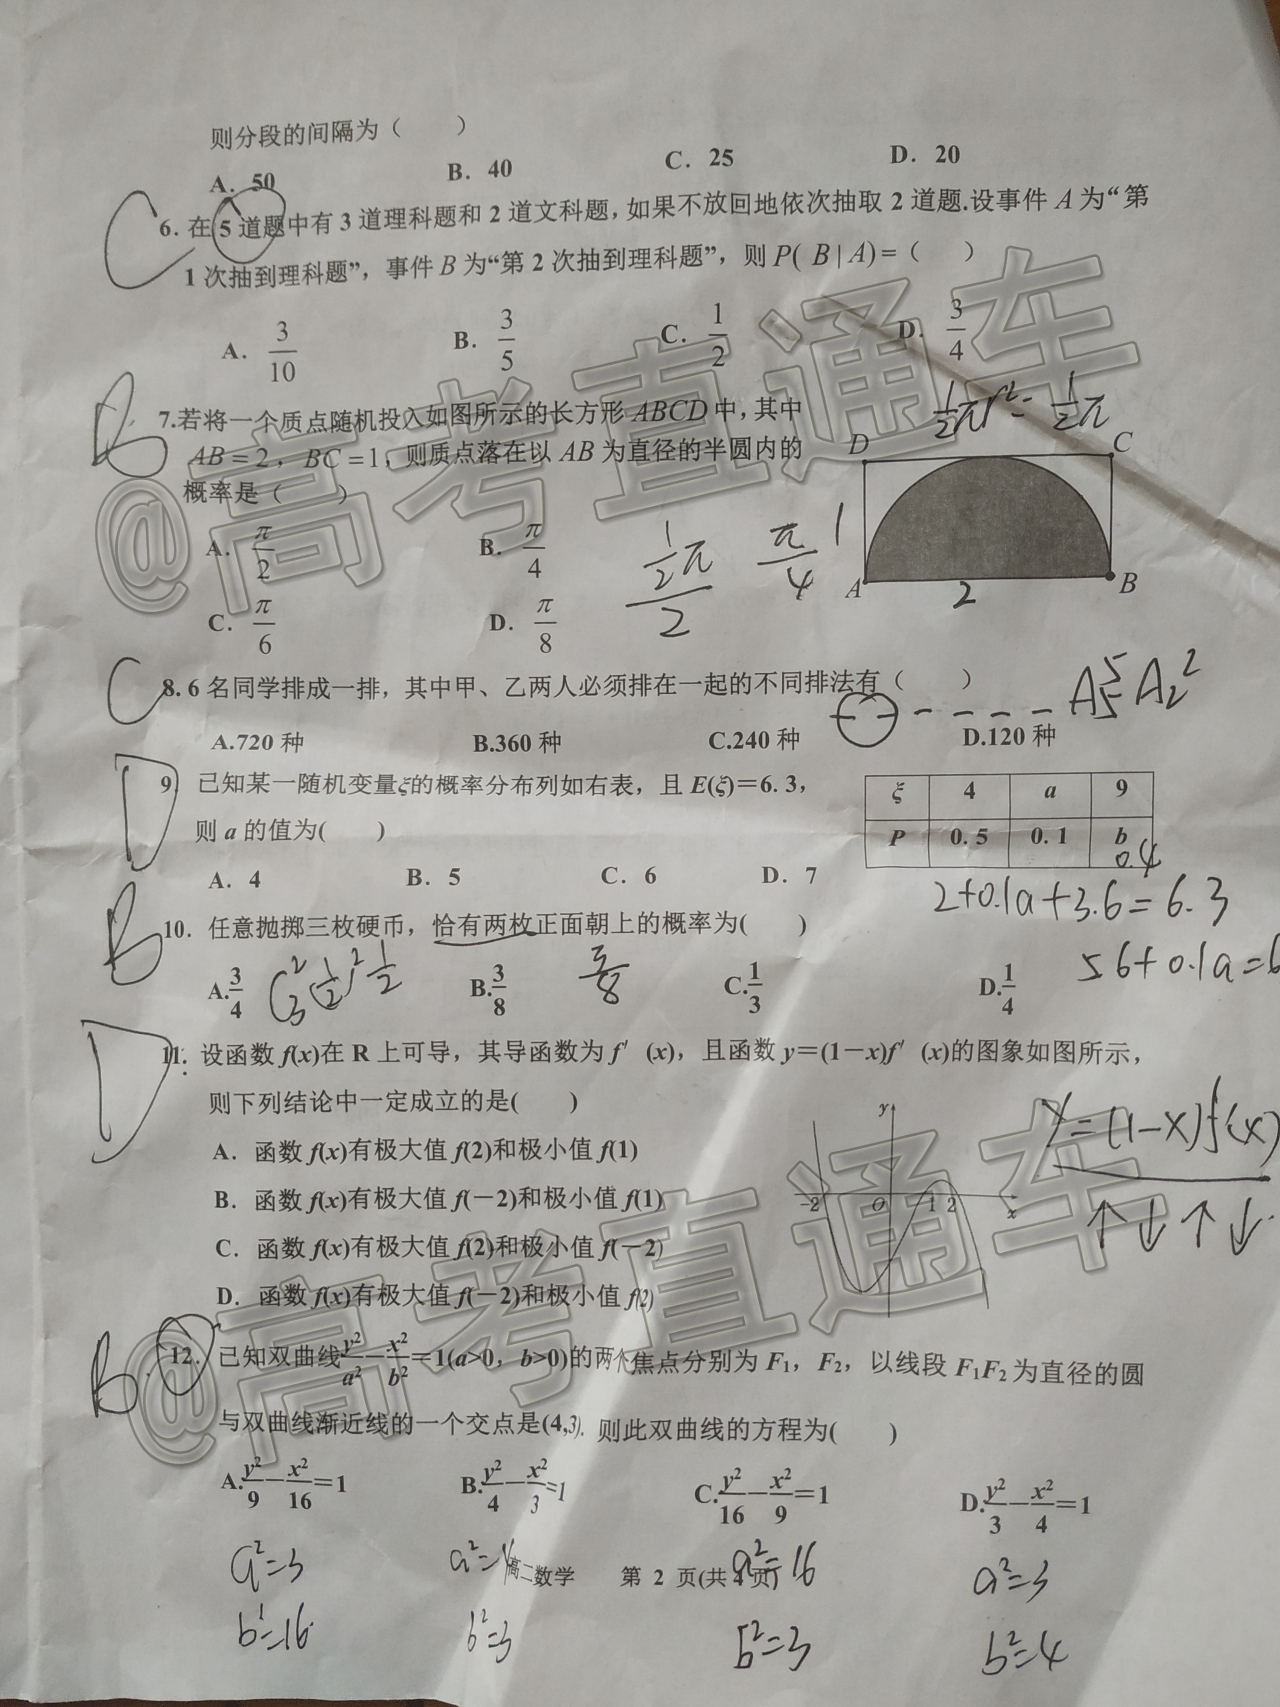 则分段的间隔为（　　）
A．50　B．40　C．25　D．20
C
6．在5道题中有3道理科题和2道文科题，如果不放回地依次抽取2道题.设事件A为“第
1次抽到理科题”，事件B为“第2次抽到理科题”，则P( B | A)=（　　）
A． 3/10　B． 3/5　C． 1/2　D． 3/4
B
7.若将一个质点随机投入如图所示的长方形ABCD中，其中
AB=2，BC=1，则质点落在以AB为直径的半圆内的
概率是（　　）
A． π/2　B． π/4
C． π/6　D． π/8
½πr²= ½π
D　C
A　B
1
2
½π/2　π/4
C
8. 6名同学排成一排，其中甲、乙两人必须排在一起的不同排法有（　　）
A.720种　B.360种　C.240种　D.120种
A₅⁵A₂²
D
9　已知某一随机变量ξ的概率分布列如右表，且E(ξ)=6.3，
则a的值为(　　)
A．4　B．5　C．6　D．7
ξ　4　a　9
P　0.5　0.1　b
0.4
2+0.1a+3.6=6.3
5.6+0.1a=6
B
10．任意抛掷三枚硬币，恰有两枚正面朝上的概率为(　　)
A.3/4　B.3/8　C.1/3　D.1/4
C₃²(½)²½　3/8
D
11．设函数f(x)在R上可导，其导函数为f′(x)，且函数y=(1－x)f′(x)的图象如图所示，
则下列结论中一定成立的是(　　)
A．函数f(x)有极大值f(2)和极小值f(1)
B．函数f(x)有极大值f(－2)和极小值f(1)
C．函数f(x)有极大值f(2)和极小值f(－2)
D．函数f(x)有极大值f(－2)和极小值f(2)
y
-2　O　1　2　x
y=(1-x)f'(x)
↑↓↑↓
B
12．已知双曲线y²/a²－x²/b²=1(a>0，b>0)的两个焦点分别为F₁，F₂，以线段F₁F₂为直径的圆
与双曲线渐近线的一个交点是(4,3)，则此双曲线的方程为(　　)
A.y²/9－x²/16=1　B.y²/4－x²/3=1　C.y²/16－x²/9=1　D.y²/3－x²/4=1
a²=3　a²=4　a²=16　a²=3
高二数学　第 2 页(共4页)
b²=16　b²=3　b²=3　b²=4
@高考直通车
@高考直通车